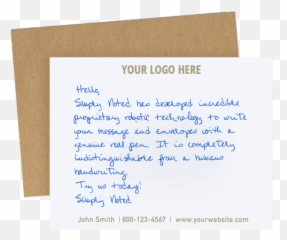 YOUR LOGO HERE
Hello,
Simply Noted has developed incredible
proprietary robotic technology to write
your message and envelopes with a
genuine real pen. It is completely
indistinguishable from a human
handwriting.
Try us today!
Simply Noted
John Smith | 800-123-4567 | www.yourwebsite.com